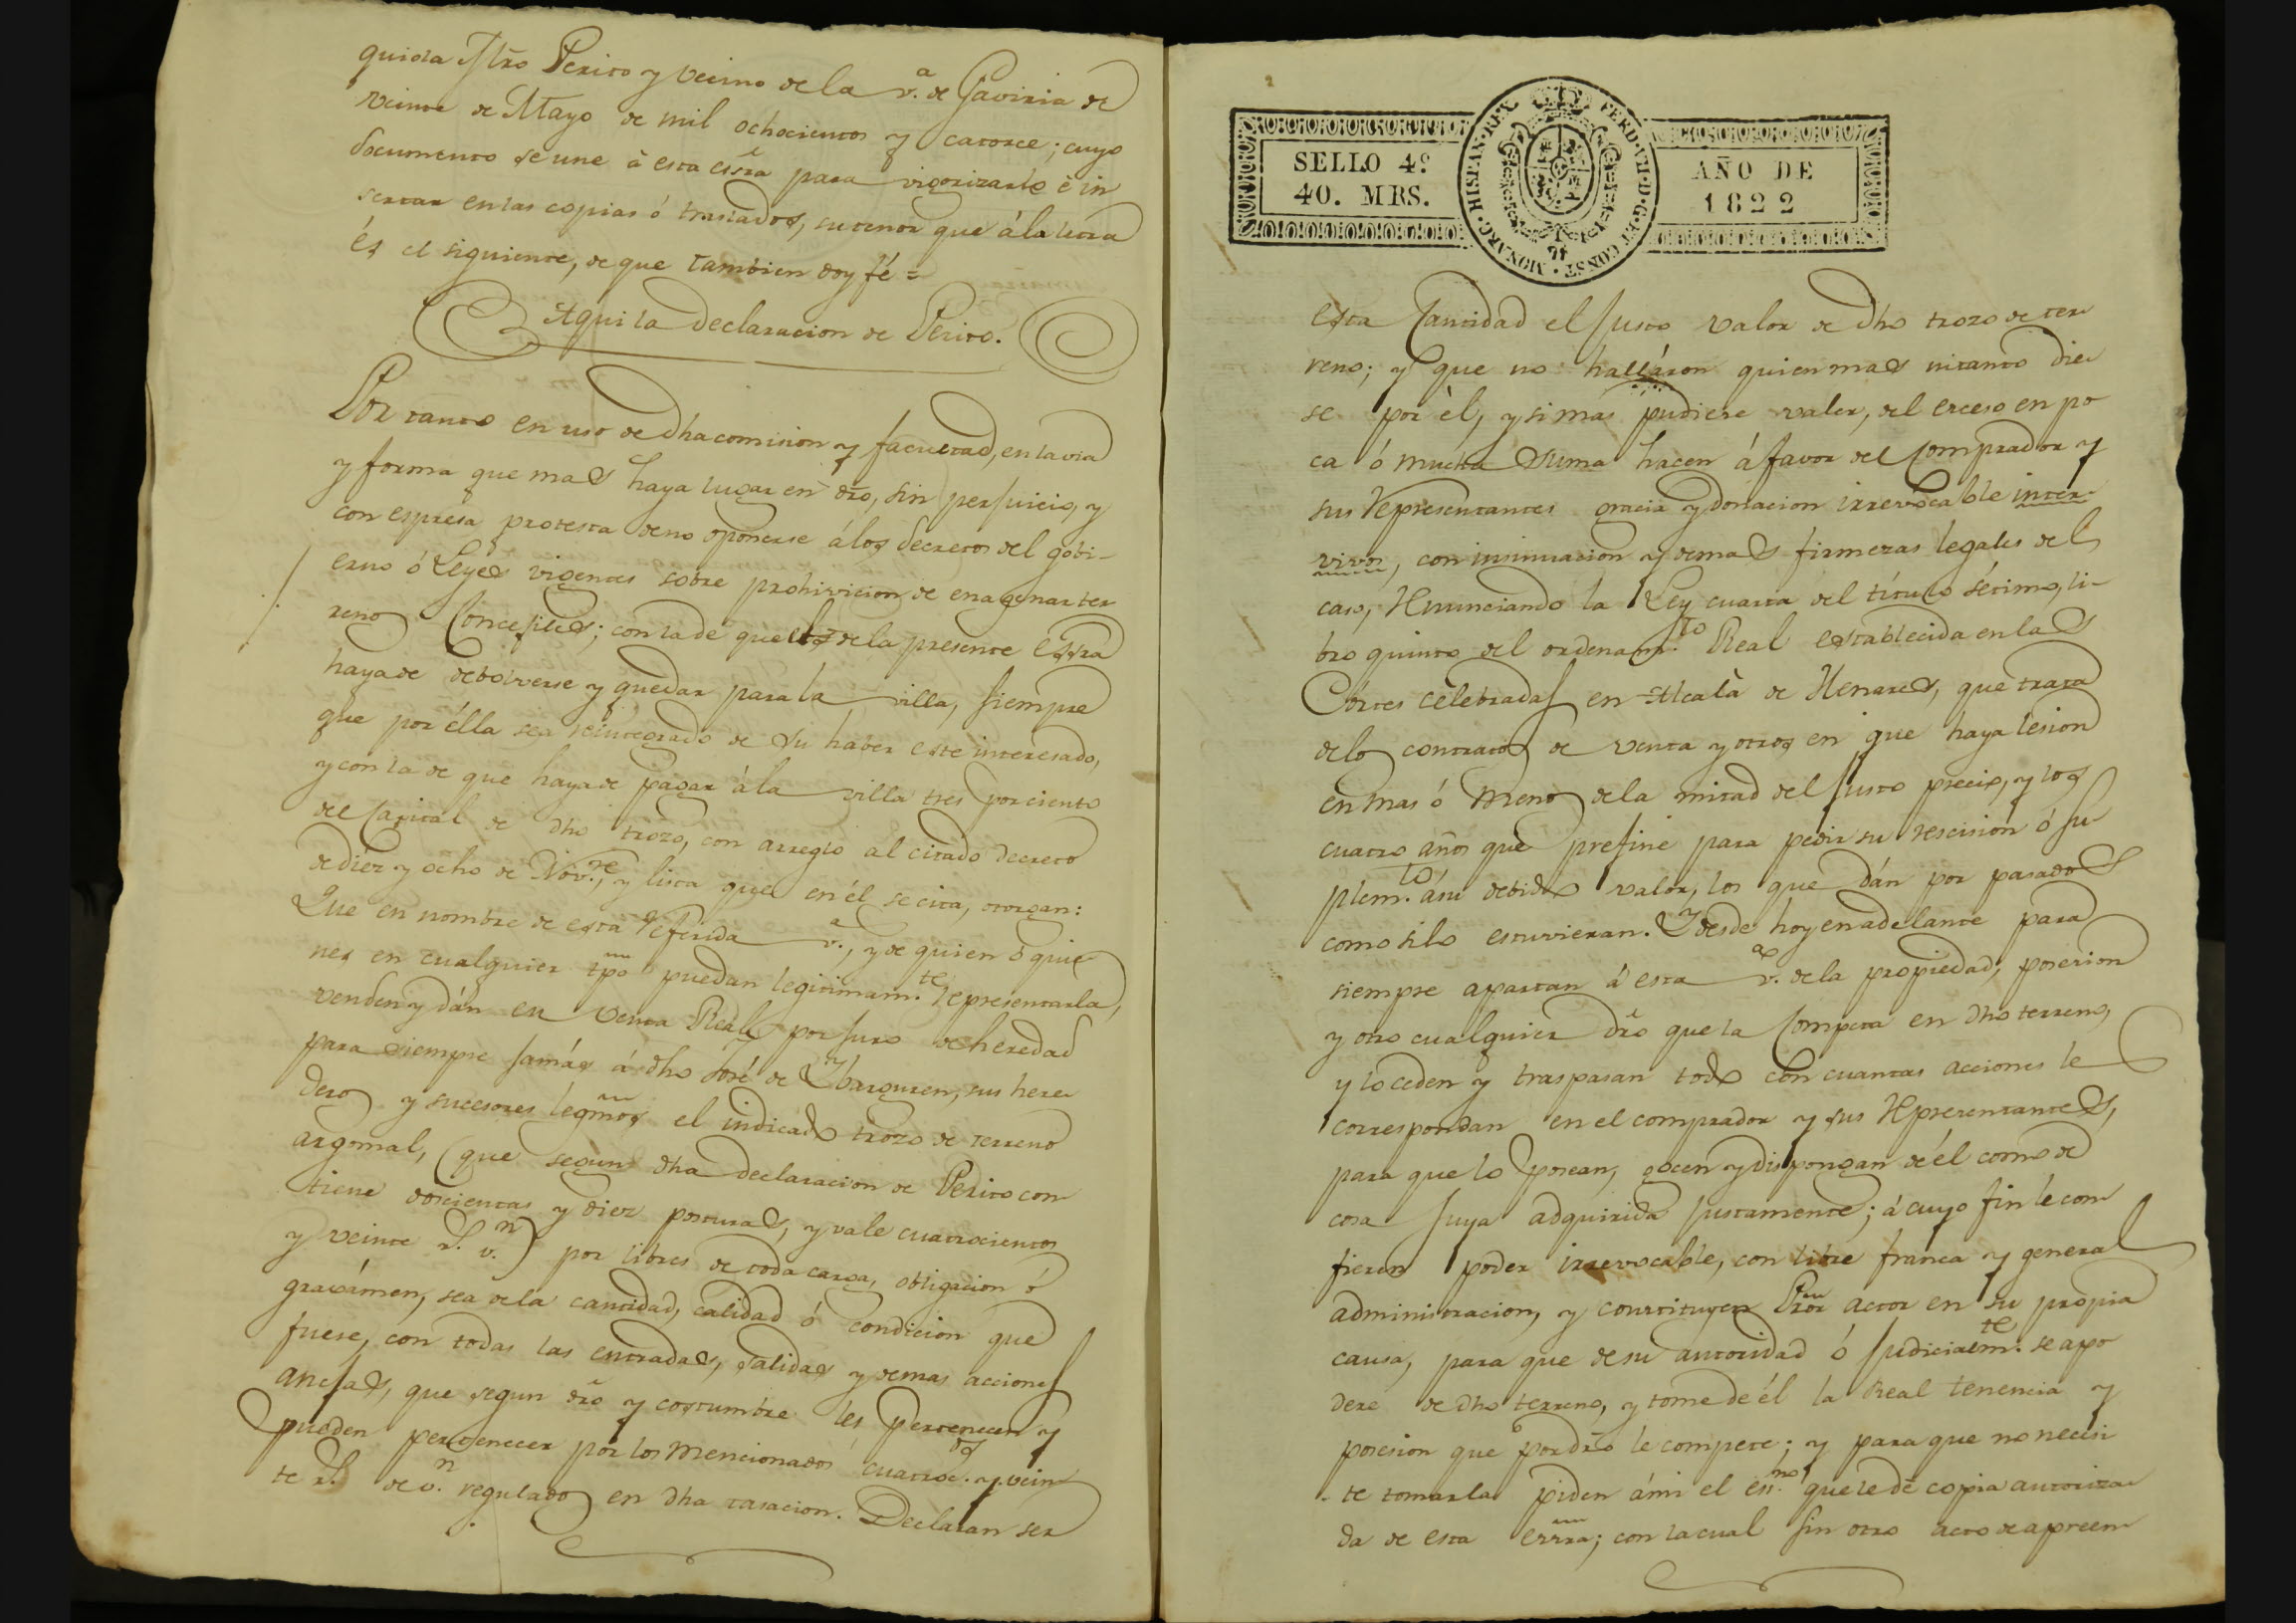 quiola Mtro Perito y Vecino de la v.ª de Gaviria de
veinte de Mayo de mil ochocientos y catorce; cuyo
documento se une à esta essrã para vigorizarlo è in
sertar en las copias ó traslados, su tenor que á la letra
és el siguiente, de que tambien doy fé =
Aqui la declaracion de Perito.
Por tanto en uso de dha comision y facultad, en la via
y forma que mas haya lugar en dro, sin perjuicio, y
con espresa protesta de no oponerse álos decretos del gobi-
erno ó Leyes vigentes sobre prohivicion de enagenar ter
reno Concejiles; con la de que el de la presente Essra
haya de debolverse y quedar para la villa, siempre
que por élla sea reintegrado de su haber este interesado,
y con la de que haya de pagar á la villa tres por ciento
del Capital de dho trozo, con arreglo al citado decreto
de diez y ocho de Nov.re, y lista que en él se cita, otorgan:
Que en nombre de esta referida v.ª, y de quien ó quie
nes en cualquier tpõ puedan legitimam.te representarla,
venden y dán en venta Real por juro de heredad
para siempre jamás á dho José de Ybarguren, sus here
deros y sucesores legmõs el indicado trozo de terreno
argomal, (que segun dha declaracion de Perito con
tiene doscientas y diez posturas, y vale cuatrocientos
y veinte r.s v.n) por libres de toda carga, obligacion ó
gravámen, sea de la cantidad, calidad ó condicion que
fuere, con todas las entradas, salidas y demas acciones
anejas, que segun drõ y costumbre les pertenecen y
pueden pertenecer por los mencionados cuatroc.os y vein
te r.s de v.n regulados en dha tasacion. Declaran ser
SELLO 4º
40. MRS.
FERD·VII·D·G·ET CONST·MONARC·HISPAN·REX
AÑO DE
1822
esta Cantidad el justo valor de dho trozo de ter
reno; y que no halláron quien mas ni tanto die
se por èl, y si mas pudiere valer, del exceso en po
ca ó mucha suma hacen á favor del Comprador y
sus representantes gracia y donacion irrevocable inter
vivos, con insinuacion y demas firmezas legales del
caso, renunciando la Ley cuarta del título sétimo, li-
bro quinto del ordenam.to Real establecida en las
Córtes celebradas en Alcalà de Henares, que trata
de los contratos de venta y otros en que haya lesion
en mas ó menos de la mitad del justo precio, y los
cuatro años que prefine para pedir su rescision ó su
plem.to á su debido valor, los que dán por pasados
como si lo estuvieran. Y desde hoy en adelante para
siempre apartan á esta v.ª de la propiedad, posesion
y otro cualquier drõ que la Competa en dho terreno,
y lo ceden y traspasan todo con cuantas acciones le
correspondan en el comprador y sus representantes,
para que lo posean, gocen y dispongan de él como de
cosa suya adquirida justamente; á cuyo fin le con
fieren poder irrevocable, con libre franca y general
administracion, y constituyen Pror actor en su propia
causa, para que de su autoridad ó judicialm.te se apo
dere de dho terreno, y tome de él la Real tenencia y
posesion que por drõ le compete; y para que no necesi
te tomarla piden á mi el ess.no que le dé copia autoriza
da de esta essrã; con la cual sin otro acto de apreen